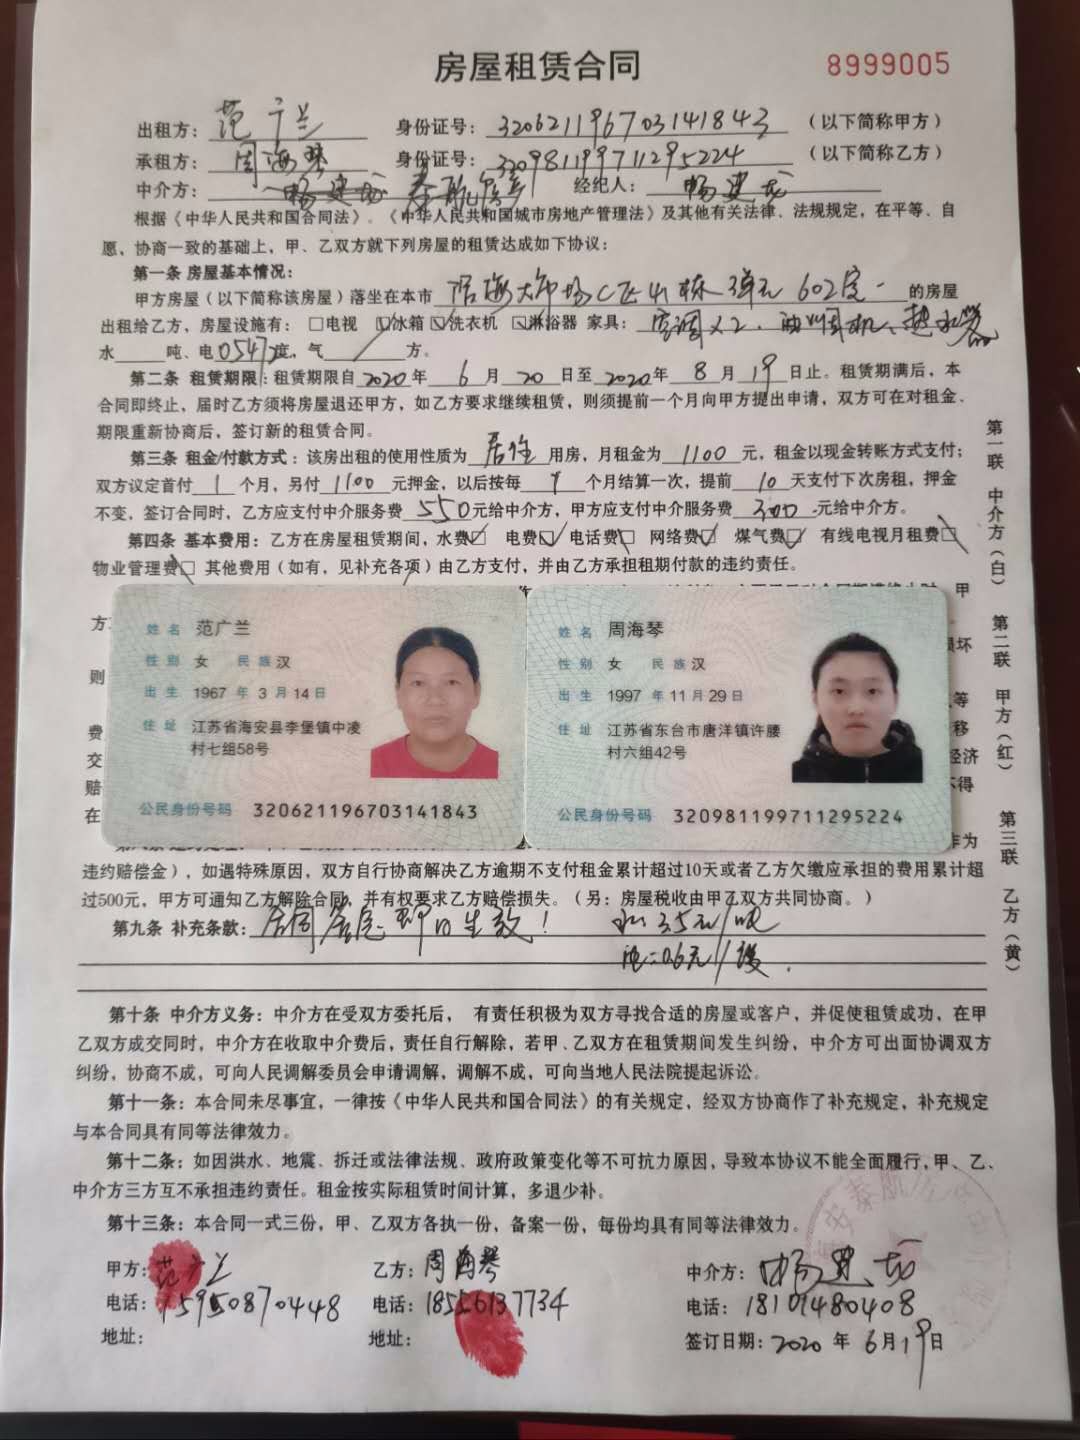 房屋租赁合同
8999005
出租方：范广兰 身份证号：320621196703141843 （以下简称甲方）
承租方：周海琴 身份证号：320981199711295224 （以下简称乙方）
中介方： 经纪人：杨建龙
根据《中华人民共和国合同法》、《中华人民共和国城市房地产管理法》及其他有关法律、法规规定，在平等、自
愿，协商一致的基础上，甲、乙双方就下列房屋的租赁达成如下协议：
第一条 房屋基本情况：
甲方房屋（以下简称该房屋）落坐在本市 602室 的房屋
出租给乙方，房屋设施有：□电视 ☑冰箱 ☑洗衣机 ☑淋浴器 家具：空调X2、油烟机、热水器
水 吨、电0547度，气 方。
第二条 租赁期限：租赁期限自2020年6月20日至2020年8月19日止。租赁期满后，本
合同即终止，届时乙方须将房屋退还甲方，如乙方要求继续租赁，则须提前一个月向甲方提出申请，双方可在对租金、
期限重新协商后，签订新的租赁合同。
第三条 租金/付款方式：该房出租的使用性质为居住用房，月租金为1100元，租金以现金转账方式支付；
双方议定首付1个月，另付1100元押金，以后按每 个月结算一次，提前10天支付下次房租，押金
不变，签订合同时，乙方应支付中介服务费550元给中介方，甲方应支付中介服务费300元给中介方。
第四条 基本费用：乙方在房屋租赁期间，水费☑ 电费☑ 电话费□ 网络费☑ 煤气费☑ 有线电视月租费□
物业管理费□ 其他费用（如有，见补充各项）由乙方支付，并由乙方承担租期付款的违约责任。
甲
方
损坏
则
等
费
移
交
经济
赔
不得
在
姓名 范广兰
性别 女 民族 汉
出生 1967 年 3 月 14 日
住址 江苏省海安县李堡镇中凌
村七组58号
公民身份号码 320621196703141843
姓名 周海琴
性别 女 民族 汉
出生 1997 年 11 月 29 日
住址 江苏省东台市唐洋镇许腰
村六组42号
公民身份号码 320981199711295224
作为
违约赔偿金），如遇特殊原因，双方自行协商解决乙方逾期不支付租金累计超过10天或者乙方欠缴应承担的费用累计超
过500元，甲方可通知乙方解除合同，并有权要求乙方赔偿损失。（另：房屋税收由甲乙双方共同协商。）
第九条 补充条款： 即日生效！ 水：3.5元/吨
电：0.6元/度.
第十条 中介方义务：中介方在受双方委托后， 有责任积极为双方寻找合适的房屋或客户，并促使租赁成功，在甲
乙双方成交同时，中介方在收取中介费后，责任自行解除，若甲、乙双方在租赁期间发生纠纷，中介方可出面协调双方
纠纷，协商不成，可向人民调解委员会申请调解，调解不成，可向当地人民法院提起诉讼。
第十一条：本合同未尽事宜，一律按《中华人民共和国合同法》的有关规定，经双方协商作了补充规定，补充规定
与本合同具有同等法律效力。
第十二条：如因洪水、地震、拆迁或法律法规、政府政策变化等不可抗力原因，导致本协议不能全面履行，甲、乙、
中介方三方互不承担违约责任。租金按实际租赁时间计算，多退少补。
第十三条：本合同一式三份，甲、乙双方各执一份，备案一份，每份均具有同等法律效力。
甲方：范广兰 乙方：周海琴 中介方：杨建龙
电话：15950870448 电话：18556137734 电话：18101480408
地址： 地址： 签订日期：2020年6月19日
第一联 中介方（白） 第二联 甲方（红） 第三联 乙方（黄）